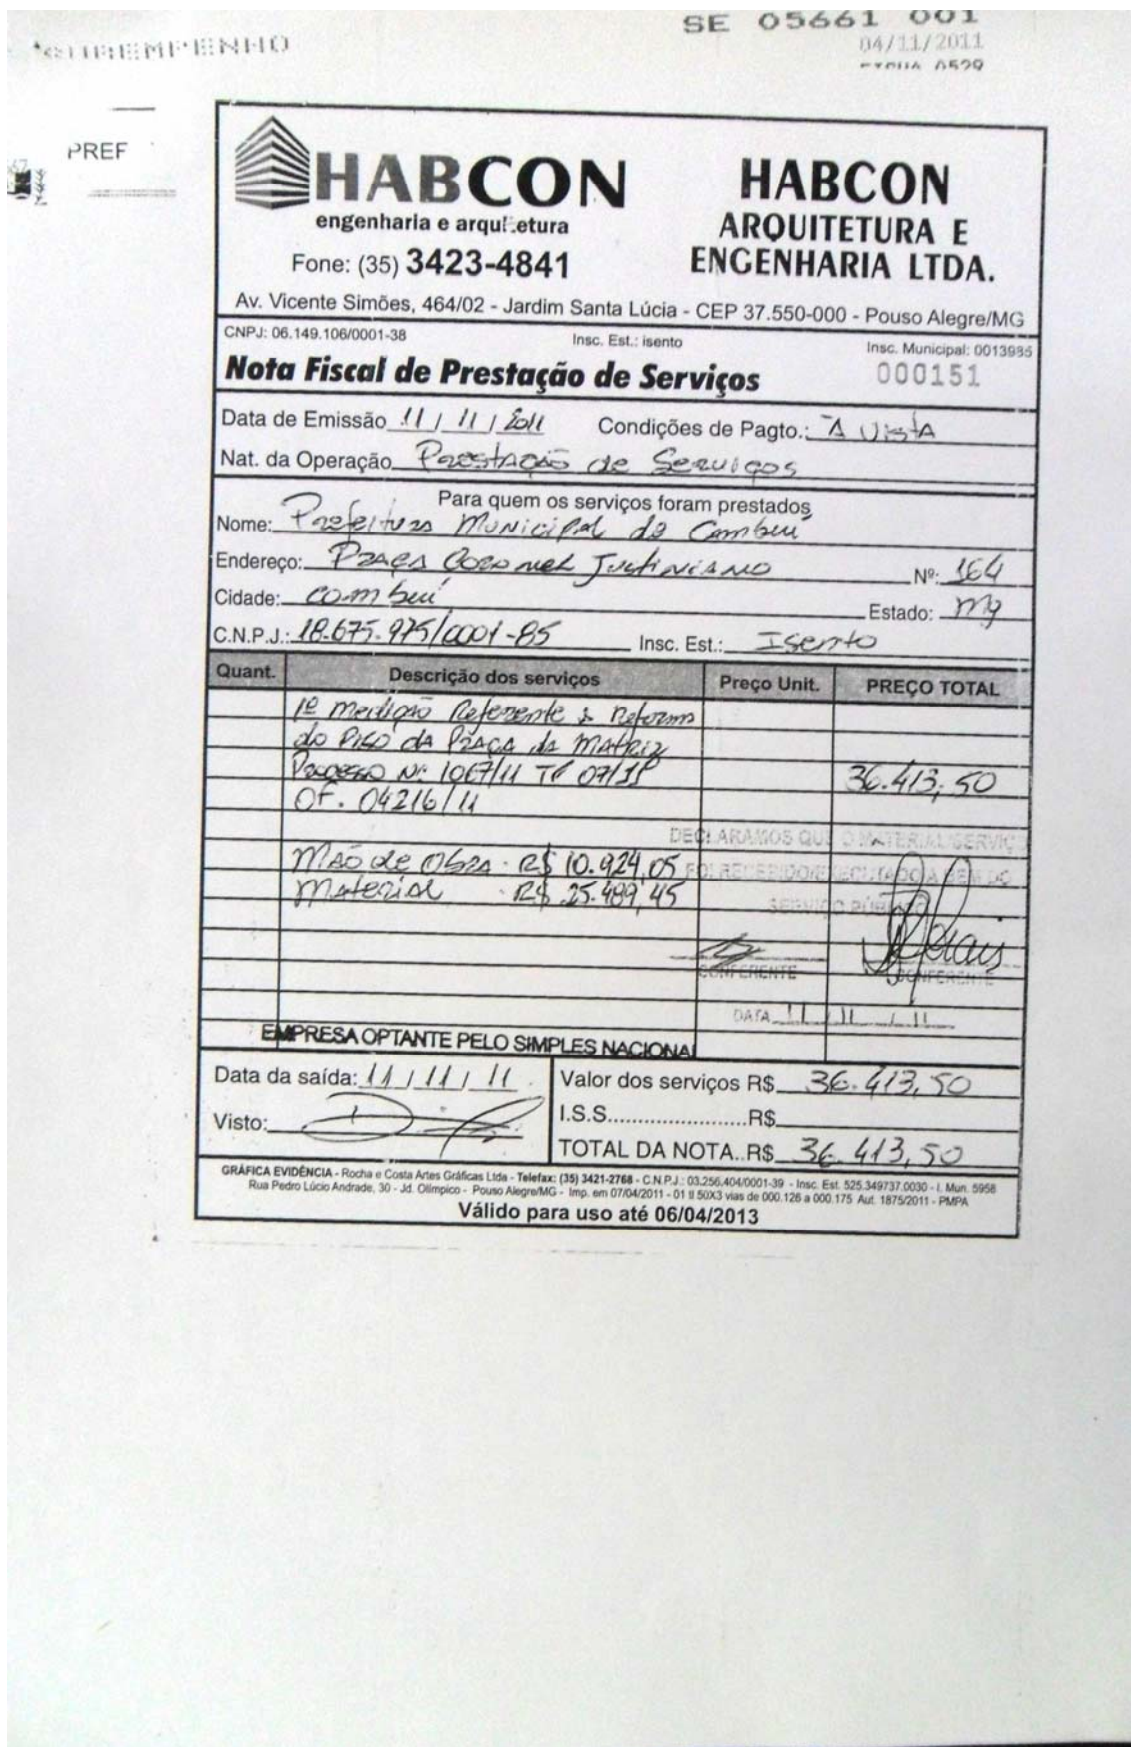 SUBEMPENHO
SE 05661 001
04/11/2011
0529
PREF
HABCON
engenharia e arquitetura
Fone: (35) 3423-4841
HABCON
ARQUITETURA E
ENGENHARIA LTDA.
Av. Vicente Simões, 464/02 - Jardim Santa Lúcia - CEP 37.550-000 - Pouso Alegre/MG
CNPJ: 06.149.106/0001-38 Insc. Est.: isento Insc. Municipal: 0013985
Nota Fiscal de Prestação de Serviços 000151
Data de Emissão 11 / 11 / 2011 Condições de Pagto.: À Vista
Nat. da Operação Prestação de Serviços
Para quem os serviços foram prestados
Nome: Prefeitura Municipal de Cambuí
Endereço: Praça Coronel Justiniano Nº: 164
Cidade: Cambuí Estado: Mg
C.N.P.J.: 18.675.975/0001-85 Insc. Est.: Isento
Quant. Descrição dos serviços Preço Unit. PREÇO TOTAL
1ª Medição Referente à Reforma
do Piso da Praça da Matriz
Processo Nº 1067/11 TP 07/11 36.413,50
OF. 04216/11
DECLARAMOS QUE O MATERIAL/SERVIÇO
Mão de Obra - R$ 10.924,05 FOI RECEBIDO/EXECUTADO A BEM DO
Material - R$ 25.489,45 SERVIÇO PÚBLICO
CONFERENTE CONFERENTE
DATA 11 / 11 / 11
EMPRESA OPTANTE PELO SIMPLES NACIONAL
Data da saída: 11 / 11 / 11 Valor dos serviços R$ 36.413,50
Visto: I.S.S.......................R$
TOTAL DA NOTA..R$ 36.413,50
GRÁFICA EVIDÊNCIA - Rocha e Costa Artes Gráficas Ltda - Telefax: (35) 3421-2768 - C.N.P.J.: 03.256.404/0001-39 - Insc. Est. 525.349737.0030 - I. Mun. 5958
Rua Pedro Lúcio Andrade, 30 - Jd. Olímpico - Pouso Alegre/MG - Imp. em 07/04/2011 - 01 tl 50X3 vias de 000.126 a 000.175 Aut. 1875/2011 - PMPA
Válido para uso até 06/04/2013